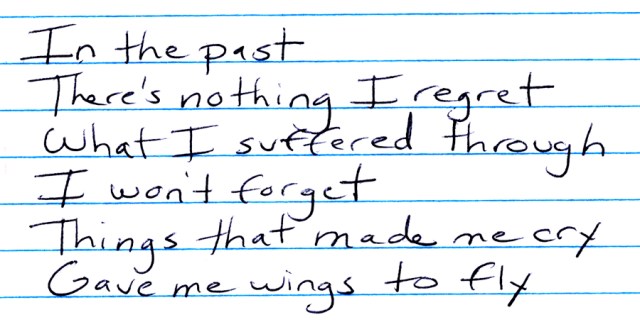 In the past
There's nothing I regret
What I suffered through
I won't forget
Things that made me cry
Gave me wings to fly